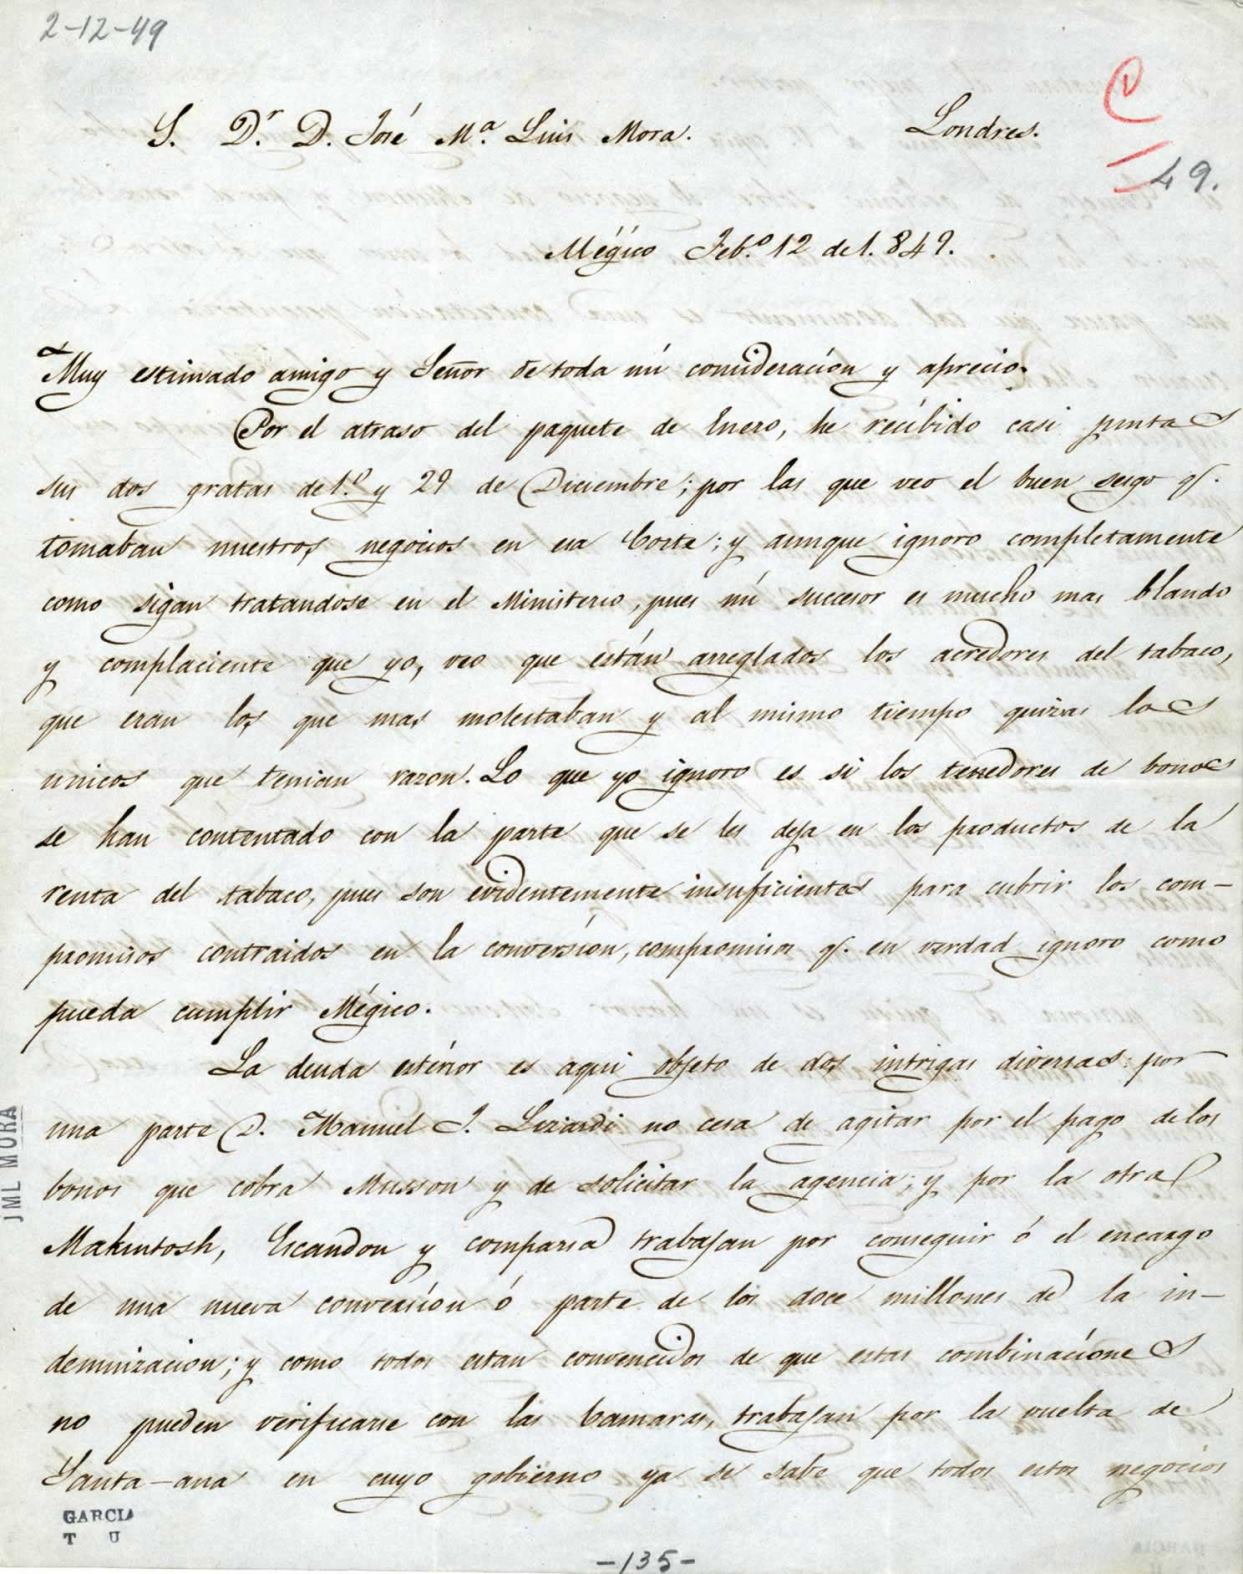 2-12-49
S. Dr. D. José Ma. Luis Mora. Londres.
49.
Mégico Febo. 12 de 1.849.
Muy estimado amigo y Señor de toda mi consideración y aprecio.
Por el atraso del paquete de Enero, he recibido casi juntas
sus dos gratas de 1.º y 29 de Diciembre; por las que veo el buen sesgo q.
tomaban nuestros negocios en esa Corte; y aunque ignoro completamente
como sigan tratandose en el Ministerio, pues mi sucesor es mucho mas blando
y complaciente que yo, veo que están arreglados los acredores del tabaco,
que eran los que mas molestaban y al mismo tiempo quizas los
unicos que tenian razon. Lo que yo ignoro es si los tenedores de bonos
se han contentado con la parte que se les deja en los productos de la
renta del tabaco, pues son evidentemente insuficientes para cubrir los com-
promisos contraidos en la conversion, compromisos q. en verdad ignoro como
pueda cumplir Mégico.
La deuda esterior es aqui objeto de dos intrigas diversas: por
una parte D. Manuel J. Lizardi no cesa de agitar por el pago de los
bonos que cobra Musson y de solicitar la agencia; y por la otra
Makintosh, Escandon y comparsa trabajan por conseguir ó el encargo
de una nueva conversion ó parte de los doce millones de la in-
demnizacion; y como todos estan convencidos de que estas combinaciones
no pueden verificarse con las Camaras, trabajan por la vuelta de
Santa-ana en cuyo gobierno ya se sabe que todos estos negocios
JML MORA
GARCIA
T U
-135-